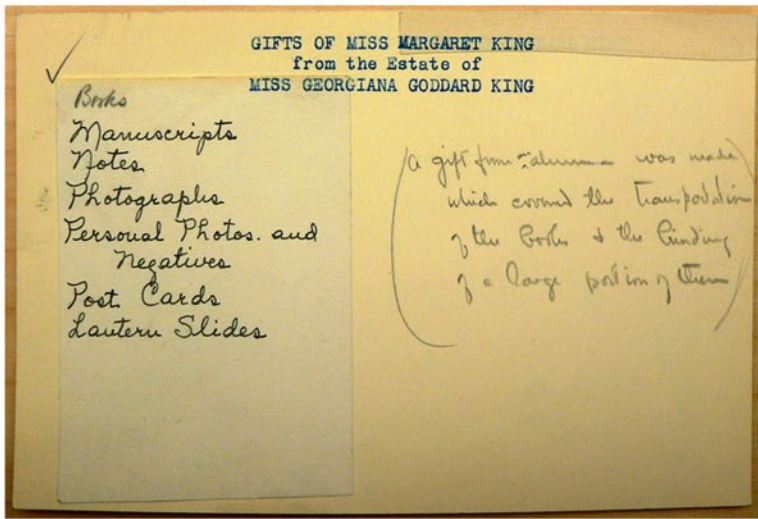 GIFTS OF MISS MARGARET KING
from the Estate of
MISS GEORGIANA GODDARD KING
Books
Manuscripts
Notes
Photographs
Personal Photos. and
Negatives
Post Cards
Lantern Slides
(A gift from alumnae was made
which covered the transportation
of the books & the binding
of a large portion of them)